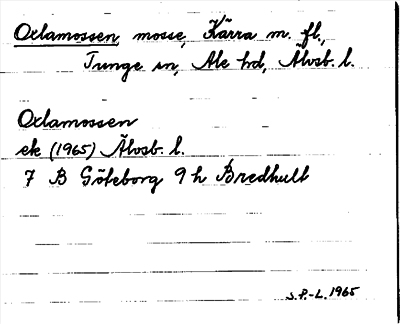 Oxlamossen, mosse, Kärra m. fl.,
Tunge sn, Ale hd, Älvsb. l.
Oxlamossen
ek (1965) Älvsb. l.
7 B Göteborg 9 h Bredhult
S.P.-L. 1965